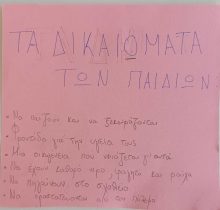 ΤΑ ΔΙΚΑΙΩΜΑΤΑ
ΤΩΝ ΠΑΙΔΙΩΝ
• Να παίζουν και να ξεκουράζονται
• Φροντίδα για την υγεία τους
• Μια οικογένεια που νοιάζεται γι' αυτά
• Να έχουν καθαρό νερό, τροφή και ρούχα
• Να πηγαίνουν στο σχολείο
• Να προστατεύονται από τον πόλεμο